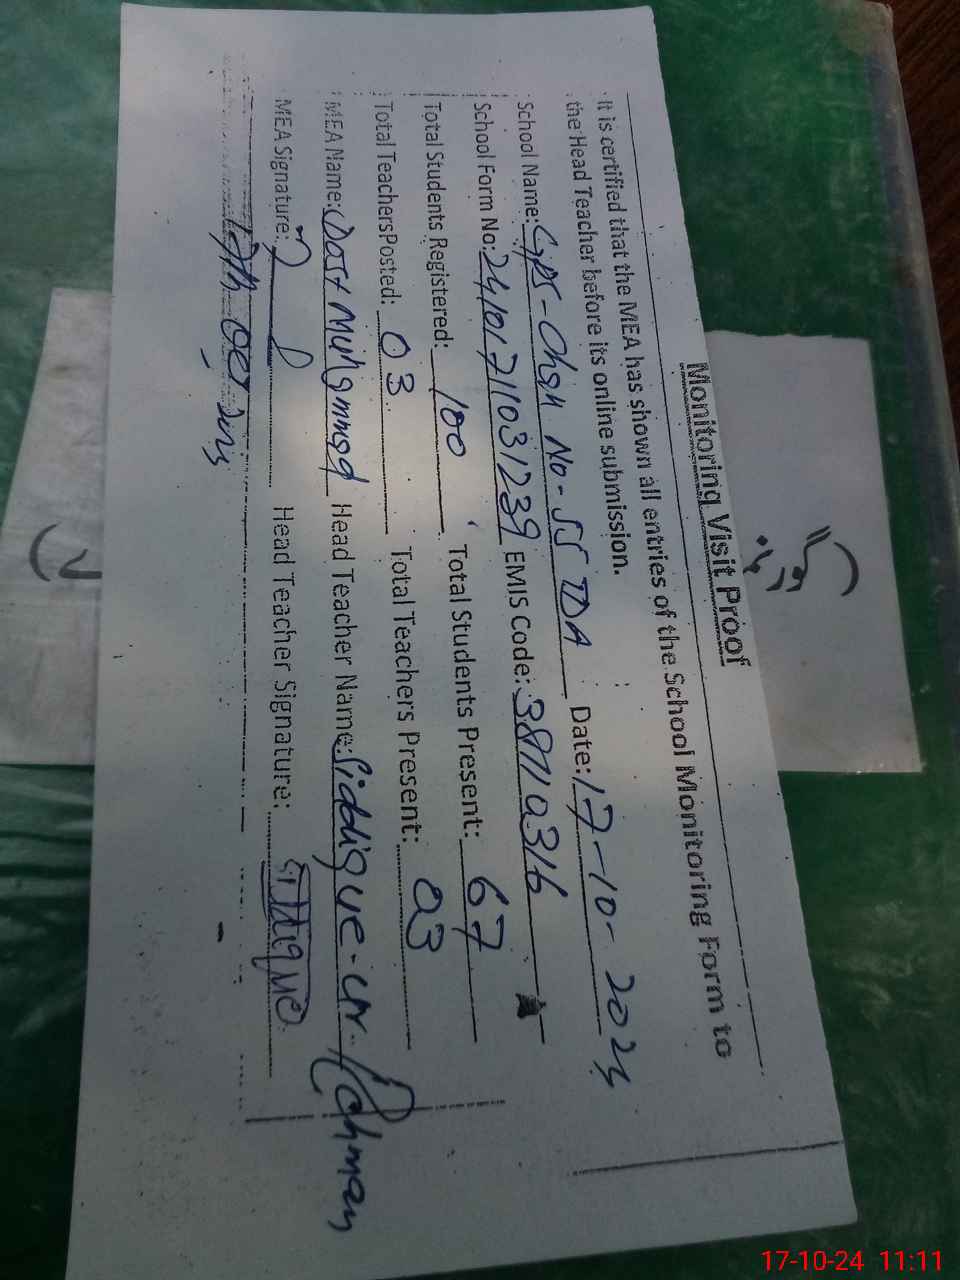 Monitoring Visit Proof
It is certified that the MEA has shown all entries of the School Monitoring Form to
the Head Teacher before its online submission.
School Name: GPS-Chah No-55 TDA Date: 17-10-2024
School Form No: 24101711031239 EMIS Code: 38110316
Total Students Registered: 100 Total Students Present: 67
Total TeachersPosted: 03 Total Teachers Present: 03
MEA Name: Dost Muhammad Head Teacher Name: Siddique-ur-Rehman
MEA Signature: Head Teacher Signature: Siddique
17-10-24 11:11